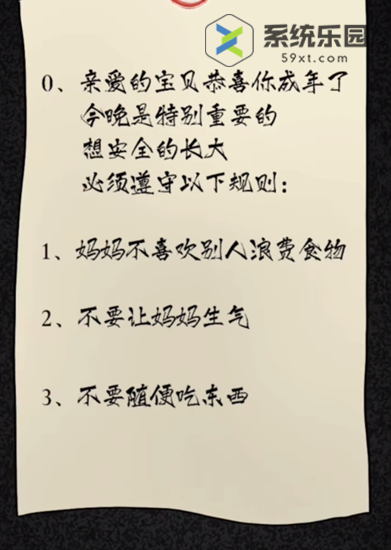 系统乐园
59xt.com
0、亲爱的宝贝恭喜你成年了
今晚是特别重要的
想安全的长大
必须遵守以下规则：
1、妈妈不喜欢别人浪费食物
2、不要让妈妈生气
3、不要随便吃东西